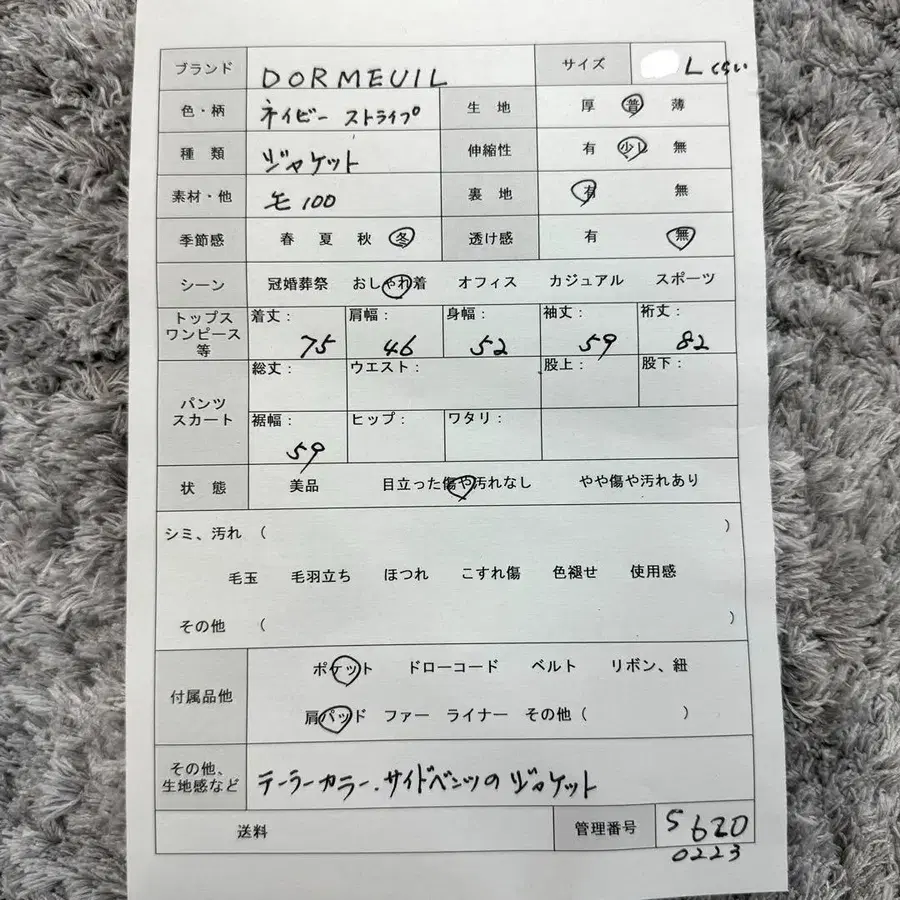 ブランド DORMEUIL サイズ Lくらい
色・柄 ネイビー ストライプ 生地 厚 普 薄
種類 ジャケット 伸縮性 有 少し 無
素材・他 毛100 裏地 有 無
季節感 春 夏 秋 冬 透け感 有 無
シーン 冠婚葬祭 おしゃれ着 オフィス カジュアル スポーツ
トップス
ワンピース
等
着丈: 肩幅: 身幅: 袖丈: 裄丈:
75 46 52 59 82
パンツ
スカート
総丈: ウエスト: 股上: 股下:
裾幅: ヒップ: ワタリ:
59
状態 美品 目立った傷や汚れなし やや傷や汚れあり
シミ、汚れ ( )
毛玉 毛羽立ち ほつれ こすれ傷 色褪せ 使用感
その他 ( )
付属品他
ポケット ドローコード ベルト リボン、紐
肩パッド ファー ライナー その他( )
その他、
生地感など
テーラーカラー.サイドベンツのジャケット
送料 管理番号 S620
0223